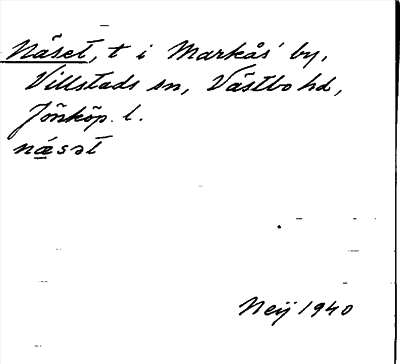 Näset, t i Markås by,
Villstads sn, Västbo hd,
Jönköp. l.
næsət
Neij 1940